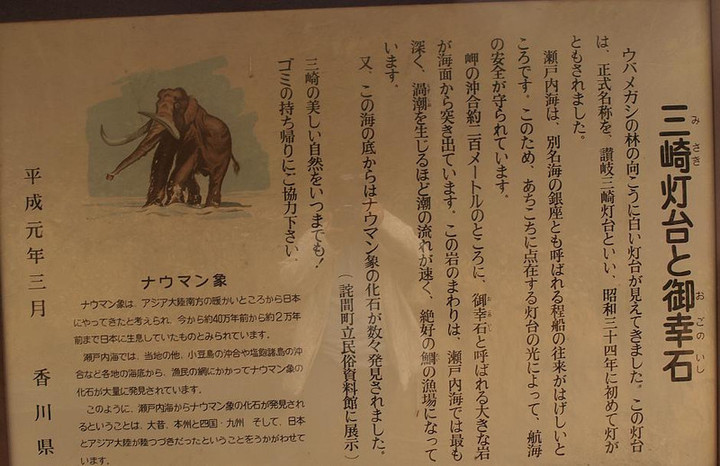 三崎灯台と御幸石
みさき
おごのいし
ウバメガシの林の向こうに白い灯台が見えてきました。この灯台
は、正式名称を、讃岐三崎灯台といい、昭和三十四年に初めて灯が
ともされました。
瀬戸内海は、別名海の銀座とも呼ばれる程船の往来がはげしいと
ころです。このため、あちこちに点在する灯台の光によって、航海
の安全が守られています。
岬の沖合約二百メートルのところに、御幸石と呼ばれる大きな岩
が海面から突き出ています。この岩のまわりは、瀬戸内海では最も
深く、渦潮を生じるほど潮の流れが速く、絶好の鯛の漁場になって
います。
又、この海の底からはナウマン象の化石が数々発見されました。
(詫間町立民俗資料館に展示)
三崎の美しい自然をいつまでも!
ゴミの持ち帰りにご協力下さい。
ナウマン象
ナウマン象は、アジア大陸南方の暖かいところから日本
にやってきたと考えられ、今から約40万年前から約2万年
前まで日本に生息していたものとみられています。
瀬戸内海では、当地の他、小豆島の沖合や塩飽諸島の沖
合など各地の海底から、漁民の網にかかってナウマン象の
化石が大量に発見されています。
このように、瀬戸内海からナウマン象の化石が発見され
るということは、大昔、本州と四国・九州 そして、日本
とアジア大陸が陸つづきだったということをうかがわせて
います。
平成元年三月 香川県